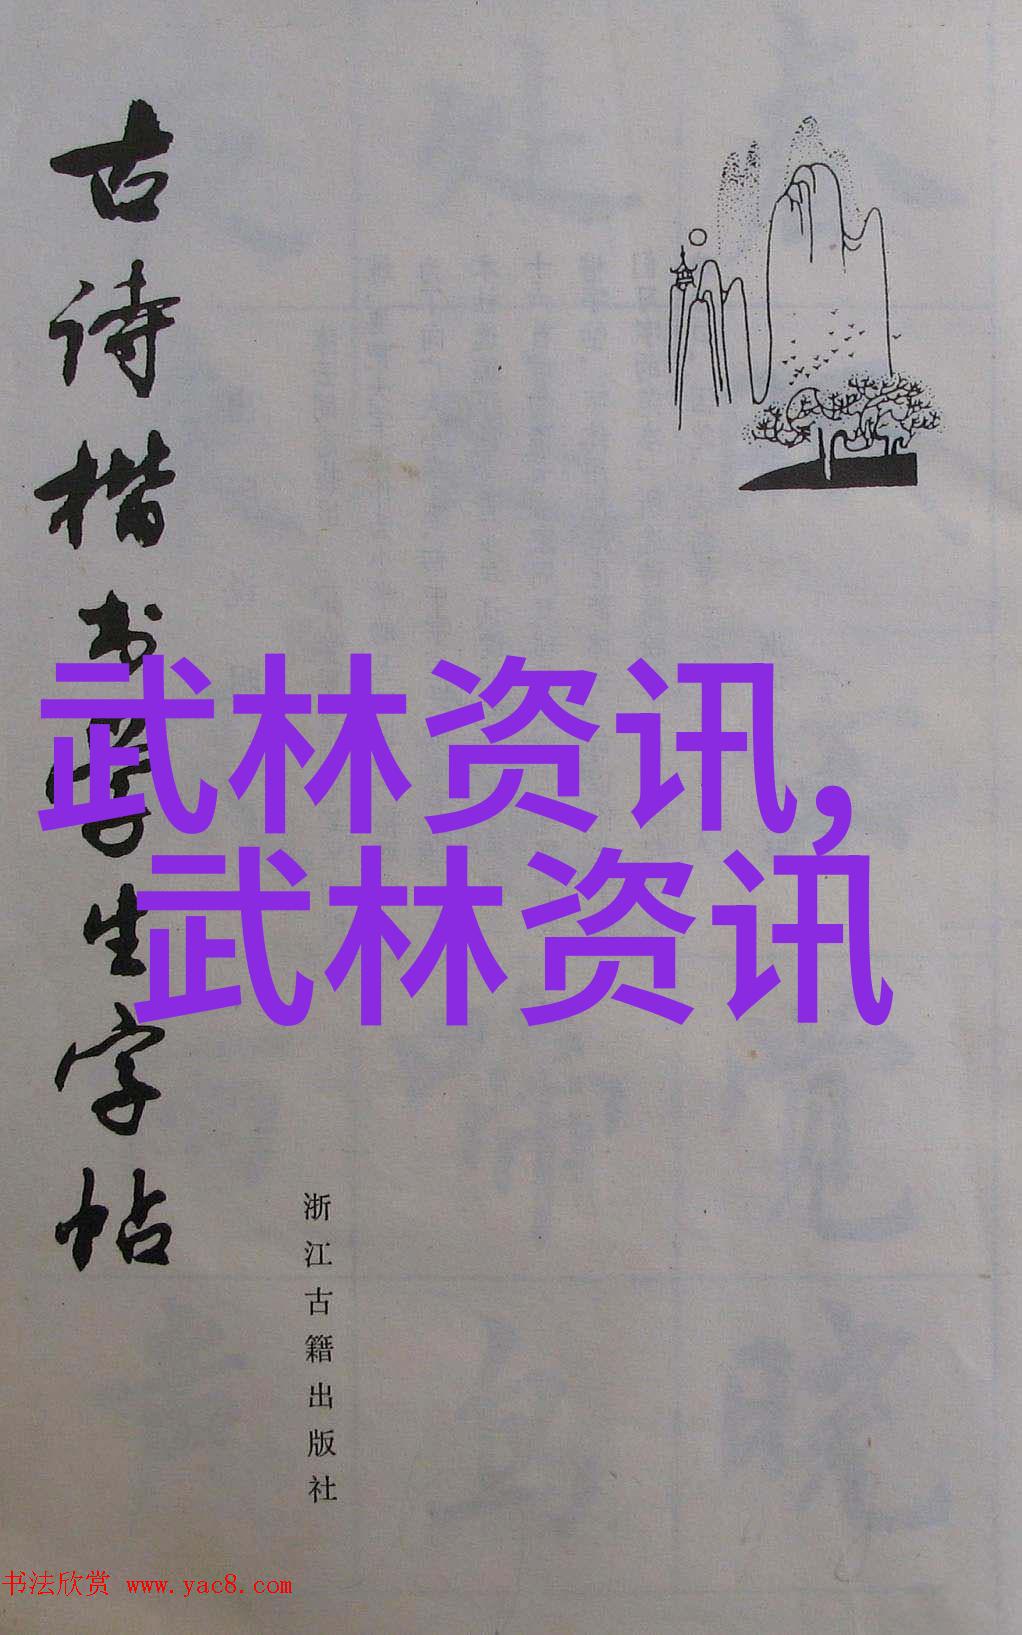 古诗楷书学生字帖
武林资讯,
武林资讯
浙江古籍出版社
书法欣赏 www.yac8.com